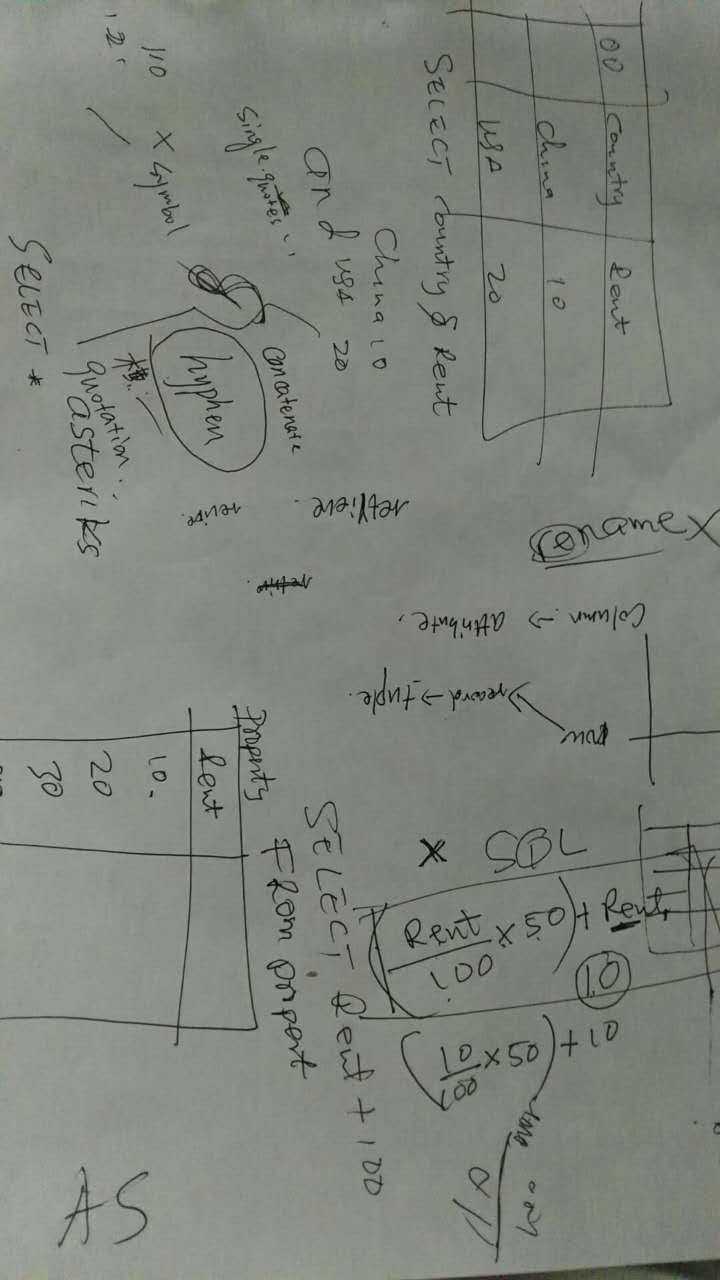 00 Country Rent
China 10
USA 20
SELECT Country & Rent
China 10
and USA 20
single quotes ' '
concatenate
110 X symbol
hyphen
quotation " "
asteriks
SELECT *
retrieve.
name X
Column → attribute.
row
record → tuple.
SQL
X
(Rent/100 × 50) + Rent
10
(10/100 × 50) + 10
SELECT Rent + 100
FROM propert
Property
Rent
10.
20
30
AS